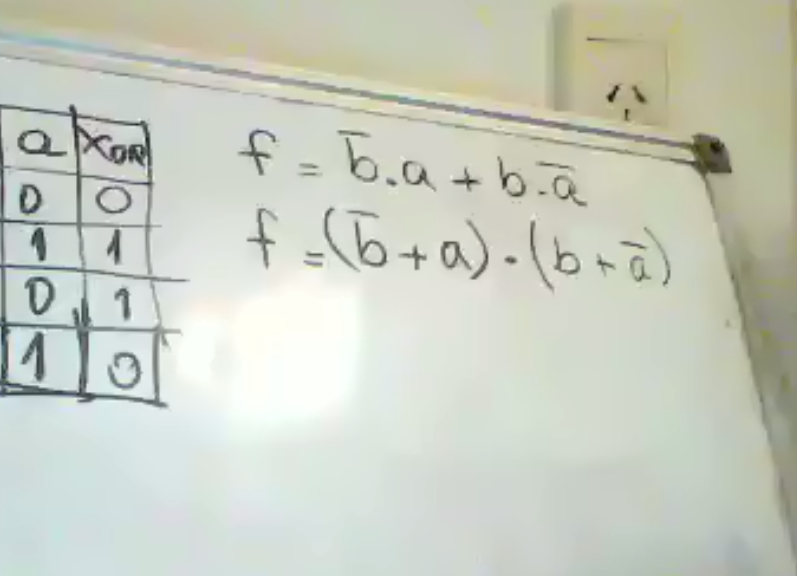 a XOR
0 0
1 1
0 1
1 0
f = b̅.a + b.a̅
f = (b̅+a).(b+a̅)